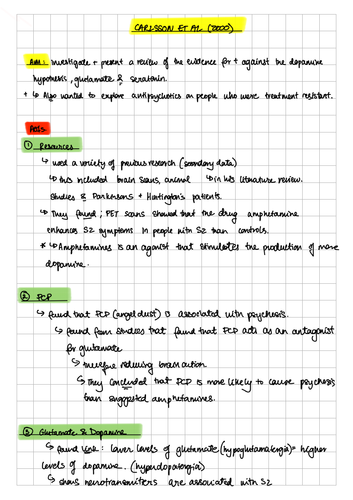 CARLSSON ET AL (2000)
Aim: investigate + present a review of the evidence for + against the dopamine
hypothesis, glutamate & serotonin.
+ ↳ Also wanted to explore antipsychotics on people who were treatment resistant.
① Resources
↳ used a variety of previous research (secondary data)
↳ this included brain scans, animal ↳ in his literature review.
Studies & Parkinsons + Huntington's patients.
↳ They found; PET scans showed that the drug amphetamine
enhances SZ symptoms in people with SZ than controls.
* ↳ Amphetamines is an agonist that stimulates the production of more
dopamine.
② PCP
↳ found that PCP (angel dust) is associated with psychosis.
↳ found from studies that found that PCP acts as an antagonist
for glutamate
↳ therefore reducing brain action.
↳ They concluded that PCP is more likely to cause psychosis
than suggested amphetamines.
③ Glutamate & Dopamine
↳ found link: lower levels of glutamate (hypoglutamatergia) = higher
levels of dopamine. (hyperdopatergia)
↳ shows neurotransmitters are associated with SZ